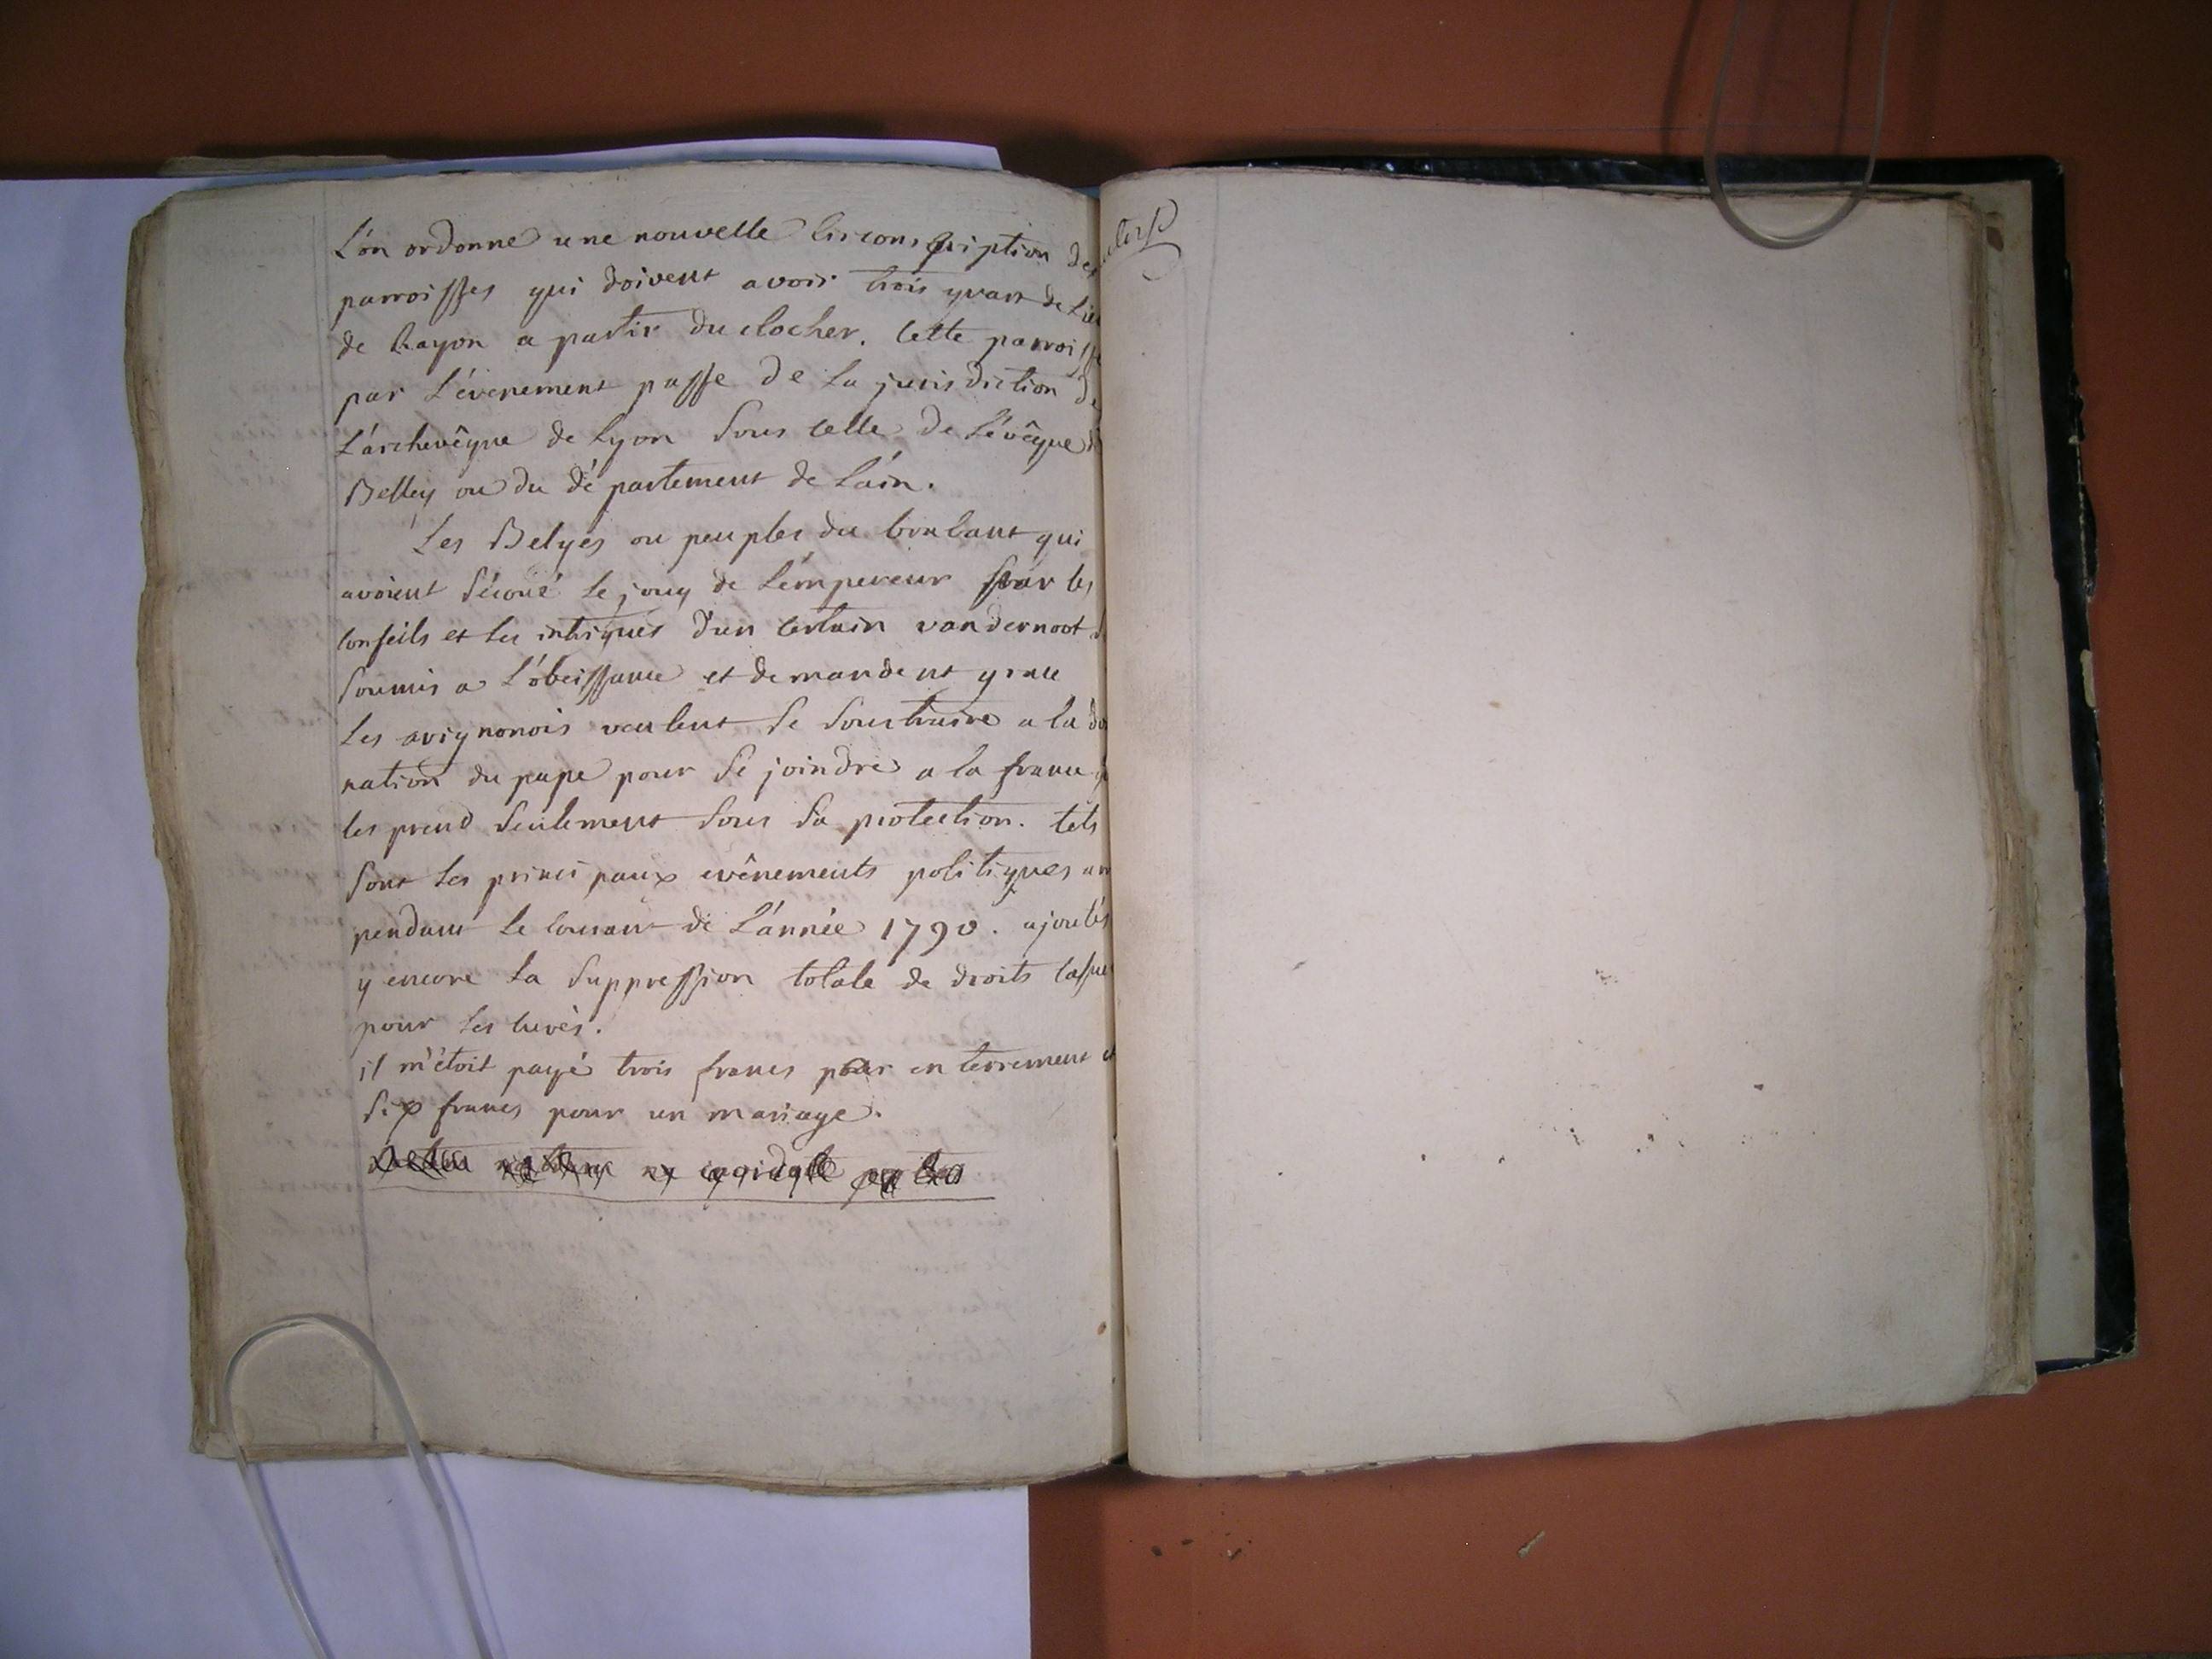 L'on ordonne une nouvelle circonscription des
parroisses qui doivent avoir trois quart de lieu
de Rayon a partir du clocher. cette parroisse
par L'évenement passe de La jurisdiction de
L'archevêque de Lyon sous celle de L'évêque
Belley ou du département de L'ain.
Les Belges ou peuples du brabant qui
avoient sécoué Le joug de L'empereur par les
conseils et les intrigues d'un certain vandernoot
soumis a L'obeissance et demandent grace
Les avignonois veulent se soustraire a la do
nation du pape pour se joindre a la france
les prend seulement sous sa protection. tels
sont les principaux evênements politiques
pendant Le courant de L'année 1790. ajoutés
y encore La suppression totale de droits casuel
pour Les curés.
il m'étoit payé trois francs par enterrement et
six francs pour un mariage.